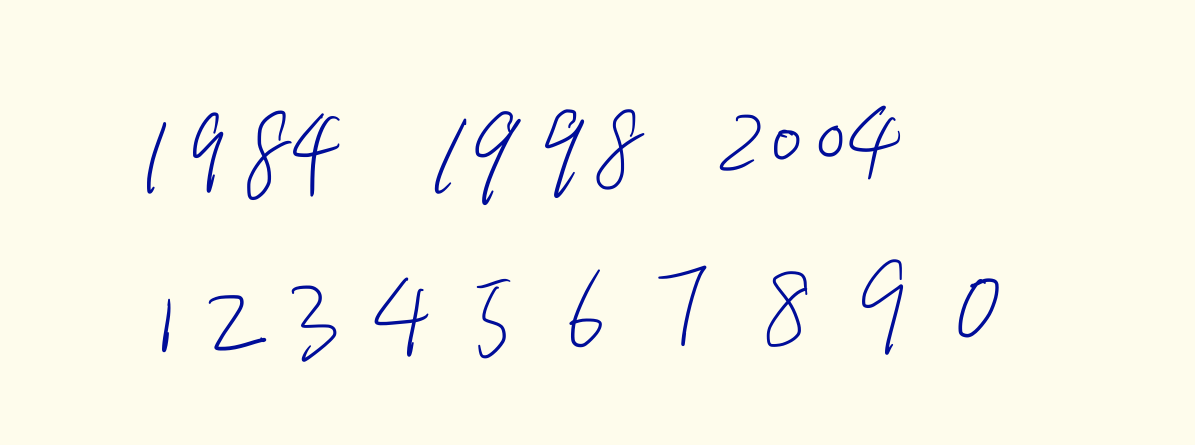 1984 1998 2004
1 2 3 4 5 6 7 8 9 0